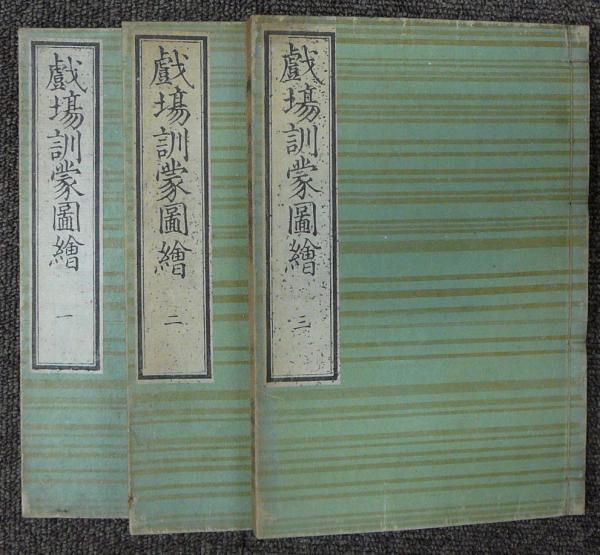 戲場訓蒙圖繪 一
戲場訓蒙圖繪 二
戲場訓蒙圖繪 三